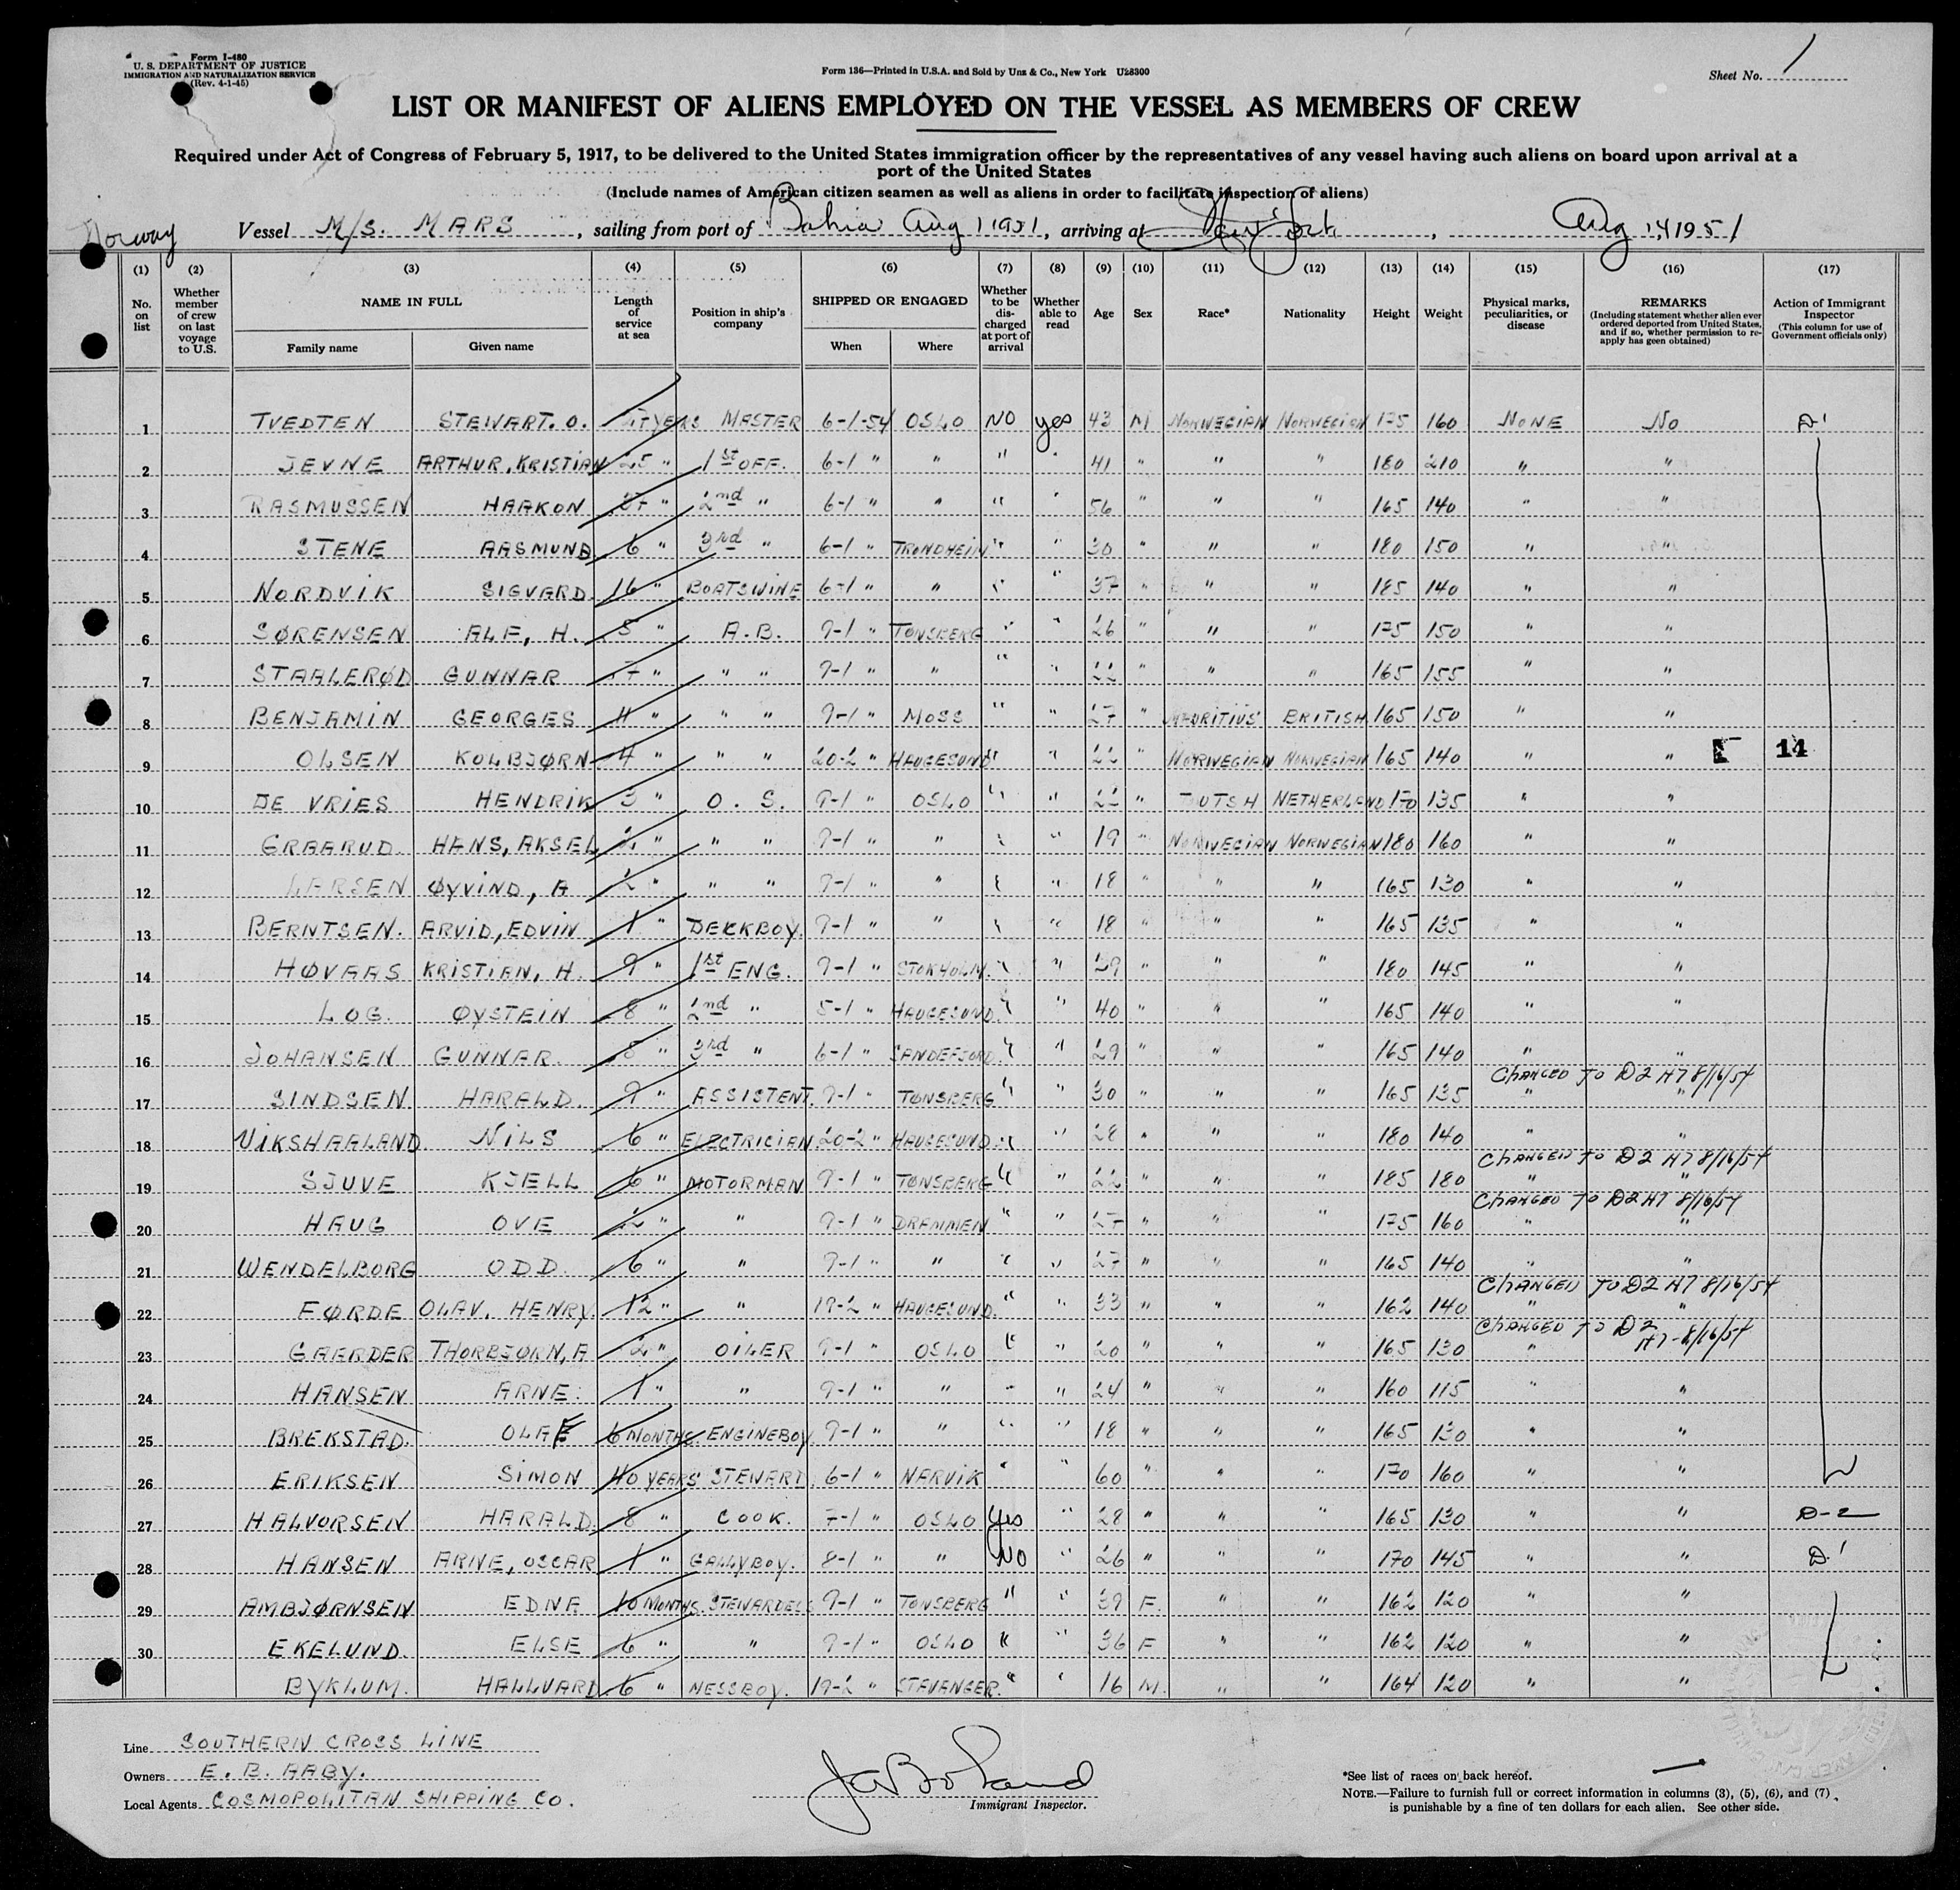 Form I-480
U. S. DEPARTMENT OF JUSTICE
IMMIGRATION AND NATURALIZATION SERVICE
(Rev. 4-1-45)
Form 136—Printed in U.S.A. and Sold by Unz & Co., New York U28300
Sheet No. 1
LIST OR MANIFEST OF ALIENS EMPLOYED ON THE VESSEL AS MEMBERS OF CREW
Required under Act of Congress of February 5, 1917, to be delivered to the United States immigration officer by the representatives of any vessel having such aliens on board upon arrival at a
port of the United States
(Include names of American citizen seamen as well as aliens in order to facilitate inspection of aliens)
Norway Vessel M/S. MARS, sailing from port of Bahia Aug 1 1951, arriving at New York, Aug 14, 1951
(1) (2) (3) (4) (5) (6) (7) (8) (9) (10) (11) (12) (13) (14) (15) (16) (17)
No. on list
Whether member of crew on last voyage to U.S.
NAME IN FULL
Family name Given name
Length of service at sea
Position in ship's company
SHIPPED OR ENGAGED
When Where
Whether to be discharged at port of arrival
Whether able to read
Age Sex Race* Nationality Height Weight
Physical marks, peculiarities, or disease
REMARKS
(Including statement whether alien ever ordered deported from United States, and if so, whether permission to re-apply has geen obtained)
Action of Immigrant Inspector
(This column for use of Government officials only)
1 TVEDTEN STEWART. O. 27 YEARS MASTER 6-1-54 OSLO NO yes 43 M NORWEGIAN NORWEGIAN 175 160 NONE NO D-1
2 JEVNE ARTHUR, KRISTIAN 25 " 1st OFF. 6-1 " " " " 41 " " " 180 210 " "
3 RASMUSSEN HAAKON 27 " 2nd " 6-1 " " " " 56 " " " 165 140 " "
4 STENE AASMUND 6 " 3rd " 6-1 " TRONDHEIM " " 30 " " " 180 150 " "
5 NORDVIK SIGVARD. 16 " BOATSWINE 6-1 " " " " 37 " " " 185 140 " "
6 SØRENSEN ALF, H. 5 " A.B. 9-1 " TØNSBERG " " 26 " " " 175 150 " "
7 STAALERØD GUNNAR 7 " " " 9-1 " " " " 22 " " " 165 155 " "
8 BENJAMIN GEORGES 4 " " " 9-1 " MOSS " " 27 " MAURITIUS BRITISH 165 150 " "
9 OLSEN KOLBJØRN 4 " " " 20-2 " HAUGESUND " " 22 " NORWEGIAN NORWEGIAN 165 140 " " 14
10 DE VRIES HENDRIK 3 " O. S. 9-1 " OSLO " " 22 " DUTSH NETHERLAND 170 135 " "
11 GRAARUD. HANS, AKSEL 2 " " " 9-1 " " " " 19 " NORWEGIAN NORWEGIAN 180 160 " "
12 LARSEN ØYVIND, A 2 " " " 9-1 " " " " 18 " " " 165 130 " "
13 BERNTSEN. ARVID, EDVIN 1 " DECKBOY. 9-1 " " " " 18 " " " 165 135 " "
14 HØVAAS KRISTIAN, H. 9 " 1st ENG. 9-1 " STOKHOLM. " " 29 " " " 180 145 " "
15 LOG. ØYSTEIN 8 " 2nd " 5-1 " HAUGESUND. " " 40 " " " 165 140 " "
16 JOHANSEN GUNNAR. 8 " 3rd " 6-1 " SANDEFJORD. " " 29 " " " 165 140 " "
CHANGED TO D2 H7 8/16/54
17 SINDSEN HARALD. 9 " ASSISTENT. 9-1 " TØNSBERG " " 30 " " " 165 135 " "
18 VIKSHAALAND NILS 6 " ELECTRICIAN 20-2 " HAUGESUND. " " 28 " " " 180 140 " "
CHANGED TO D2 H7 8/16/54
19 SJUVE KJELL 6 " MOTORMAN 9-1 " TØNSBERG " " 22 " " " 185 180 " "
CHANGED TO D2 H7 8/16/54
20 HAUG OVE 2 " " 9-1 " DRAMMEN " " 27 " " " 175 160 " "
21 WENDELBORG ODD. 6 " " 9-1 " " " " 27 " " " 165 140 " "
CHANGED TO D2 H7 8/16/54
22 FØRDE OLAV, HENRY. 12 " " 19-2 " HAUGESUND. " " 33 " " " 162 140 " "
CHANGED TO D2 H7-8/16/54
23 GAERDER THORBJØRN, A 2 " OILER 9-1 " OSLO " " 20 " " " 165 130 "
24 HANSEN ARNE. 1 " " 9-1 " " " " 24 " " " 160 115 " "
25 BREKSTAD. OLAF 6 MONTHS. ENGINEBOY. 9-1 " " " " 18 " " " 165 130 " "
26 ERIKSEN SIMON 40 YEARS STEWARD. 6-1 " NARVIK " " 60 " " " 170 160 " "
27 HALVORSEN HARALD. 8 " COOK. 7-1 " OSLO yes " 28 " " " 165 130 " " D-2
28 HANSEN ARNE, OSCAR 1 " GALLYBOY. 8-1 " " NO " 26 " " " 170 145 " " D-1
29 AMBJØRNSEN EDNA 10 MONTHS. STEWARDESS 9-1 " TØNSBERG " " 39 F. " " 162 120 " "
30 EKELUND. ELSE 6 " " 9-1 " OSLO " " 36 F " " 162 120 " "
BYKLUM. HALLVARD. 6 " MESSBOY. 19-2 " STAVANGER. " " 16 M. " " 164 120 " "
Line SOUTHERN CROSS LINE
Owners E. B. AABY.
Local Agents COSMOPOLITAN SHIPPING CO.
Immigrant Inspector.
*See list of races on back hereof.
NOTE.—Failure to furnish full or correct information in columns (3), (5), (6), and (7)
is punishable by a fine of ten dollars for each alien. See other side.